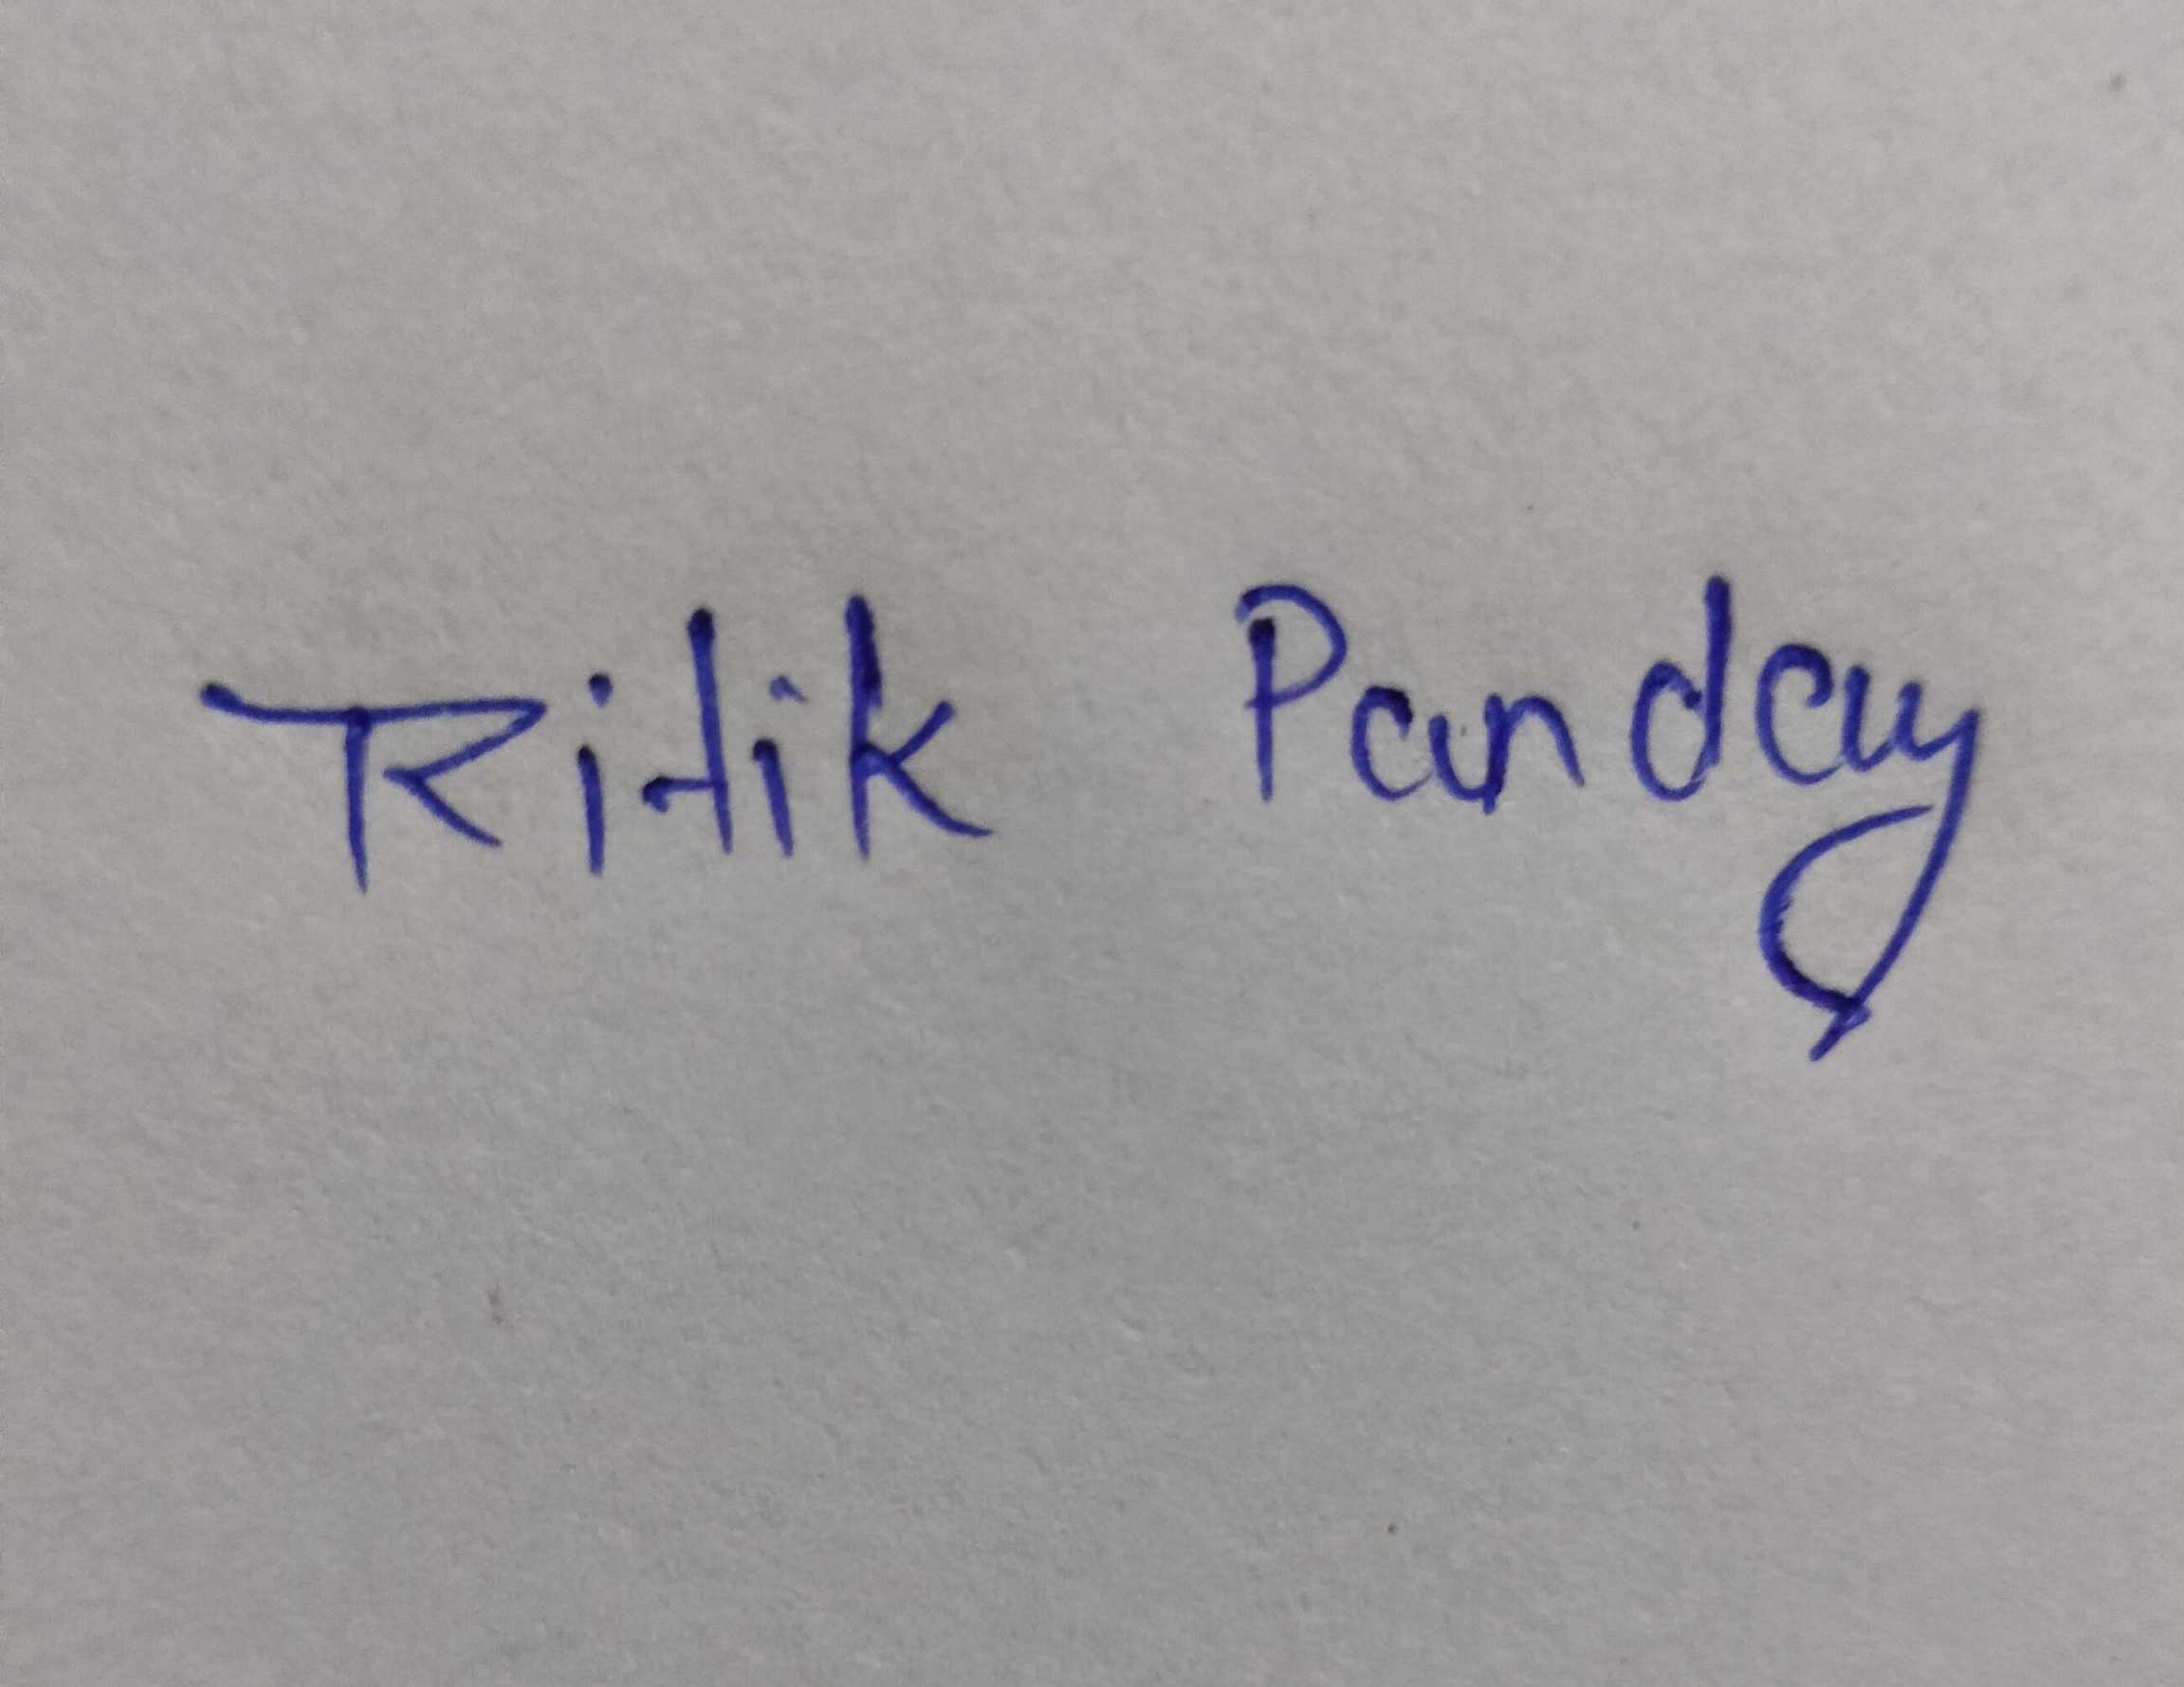 Ritik Panday